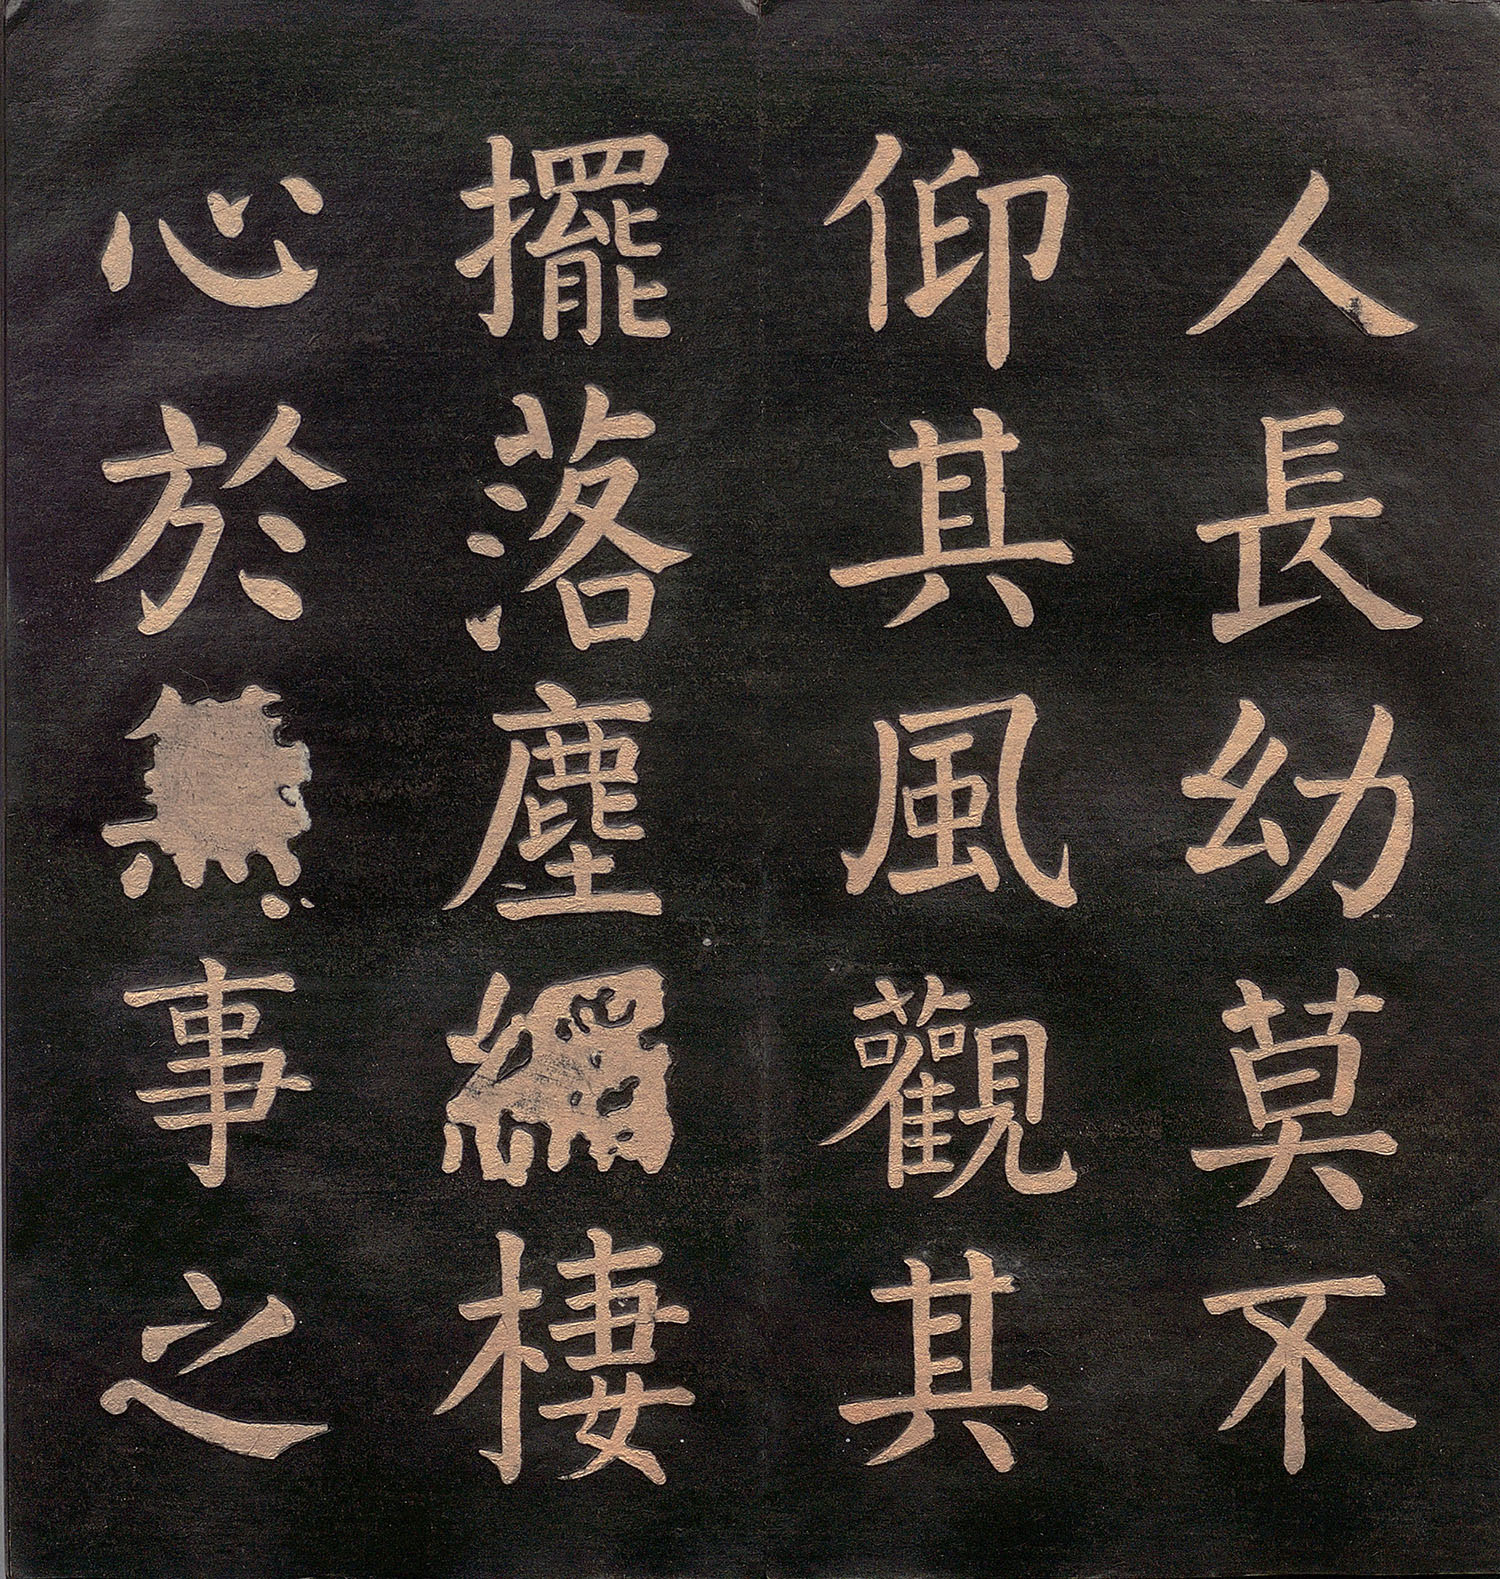 人長幼莫不
仰其風觀其
擺落塵網棲
心於無事之